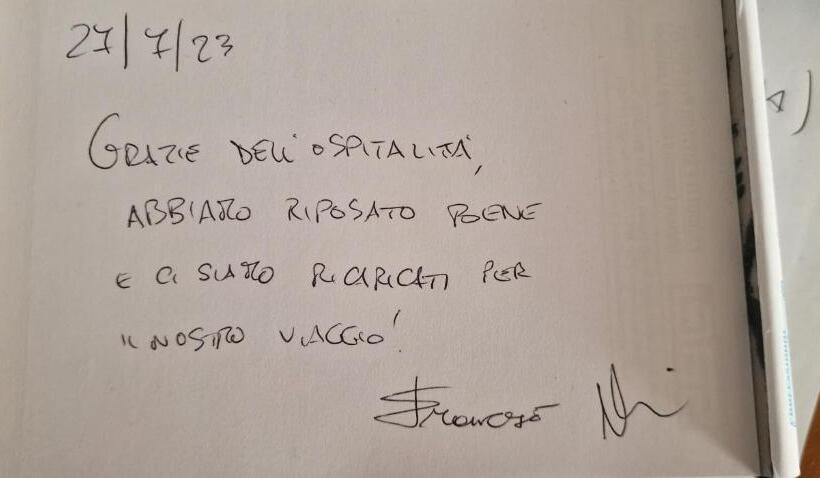 27/7/23
GRAZIE DELL'OSPITALITÀ,
ABBIAMO RIPOSATO BENE
E CI SIAMO RICARICATI PER
IL NOSTRO VIAGGIO!
Francesco